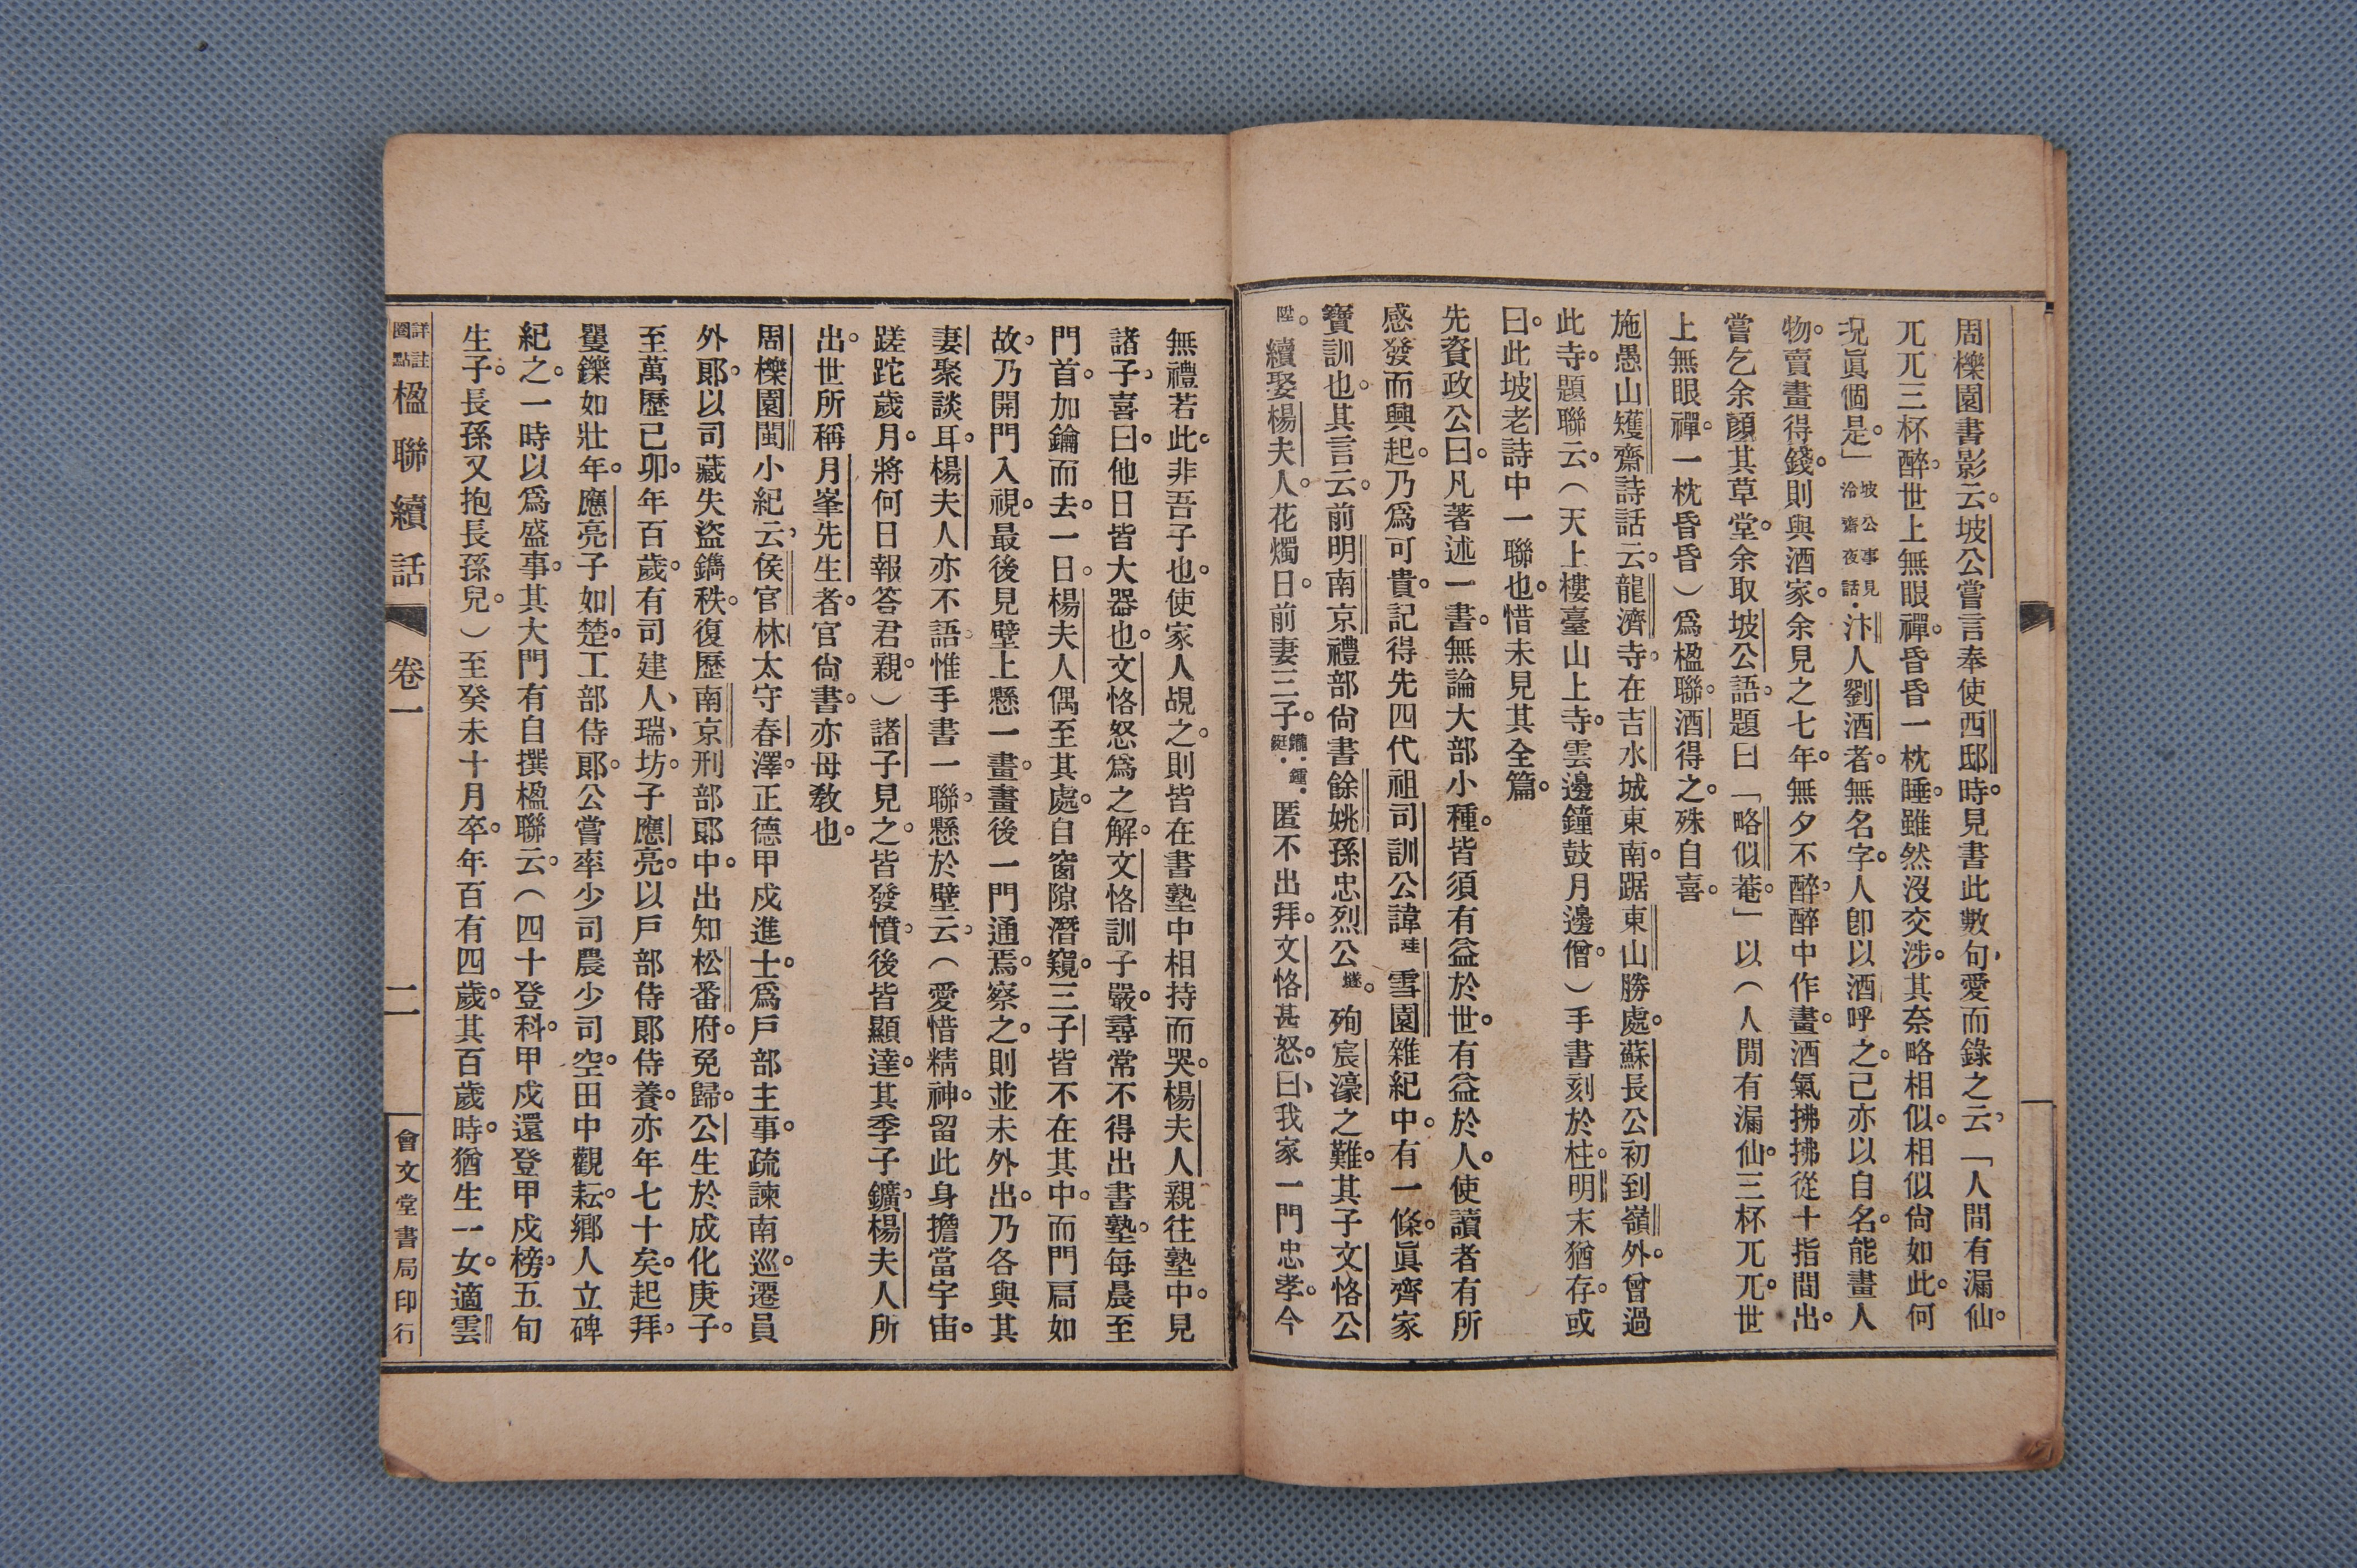 周櫟園書影云。坡公嘗言奉使西邸時。見書此數句、愛而錄之云、「人間有漏仙。
兀兀三杯醉。世上無眼禪。昏昏一枕睡。雖然沒交涉。其奈略相似。相似尙如此。何
况眞個是。」坡公事見冷齋夜話・汴人劉酒者。無名字。人卽以酒呼之。己亦以自名。能畫人
物。賣畫得錢。則與酒家。余見之七年。無夕不醉。醉中作畫。酒氣拂拂從十指間出。
嘗乞余顏其草堂。余取坡公語。題曰「略似菴。」以(人閒有漏仙。三杯兀兀。世
上無眼禪。一枕昏昏)爲楹聯。酒得之。殊自喜。
施愚山矱齋詩話云。龍濟寺。在吉水城東南。踞東山勝處。蘇長公初到嶺外。曾過
此寺。題聯云。(天上樓臺山上寺。雲邊鐘鼓月邊僧。)手書刻於柱。明末猶存。或
曰。此坡老詩中一聯也。惜未見其全篇。
先資政公曰。凡著述一書。無論大部小種。皆須有益於世。有益於人。使讀者有所
感發而興起。乃爲可貴。記得先四代祖司訓公諱珪雪園雜紀中。有一條。眞齊家
寶訓也。其言云。前明南京禮部尙書餘姚孫忠烈公燧。殉宸濠之難。其子文恪公
陞。續娶楊夫人。花燭日。前妻三子。鑨・鑵・鋌・匿不出拜。文恪甚怒。曰、我家一門忠孝。今
無禮若此。非吾子也。使家人覘之。則皆在書塾中相持而哭。楊夫人親往塾中。見
諸子、喜曰。他日皆大器也。文恪怒爲之解。文恪訓子嚴。尋常不得出書塾。每晨至
門首。加鑰而去。一日。楊夫人偶至其處。自窗隙潛窺。三子皆不在其中。而門扃如
故。乃開門入視。最後見壁上懸一畫。畫後一門通焉。察之。則並未外出。乃各與其
妻聚談耳。楊夫人亦不語。惟手書一聯。懸於壁云、(愛惜精神。留此身擔當宇宙。
蹉跎歲月。將何日報答君親。)諸子見之。皆發憤。後皆顯達。其季子鑛。楊夫人所
出。世所稱月峯先生者。官尙書。亦母敎也。
周櫟園閩小紀云、侯官林太守春澤。正德甲戍進士。爲戶部主事。疏諫南巡。遷員
外郞。以司藏失盜鐫秩。復歷南京刑部郞中。出知松番府。免歸。公生於成化庚子。
至萬歷己卯。年百歲。有司建人、瑞、坊。子應亮。以戶部侍郞侍養。亦年七十矣。起拜。
矍鑠如壯年。應亮子如楚。工部侍郞。公嘗率少司農少司空。田中觀耘。鄉人立碑
紀之。一時以爲盛事。其大門有自撰楹聯云。(四十登科。甲戍還登甲戍榜。五旬
生子。長孫又抱長孫兒。)至癸未十月卒。年百有四歲。其百歲時。猶生一女。適雲
詳註圈點楹聯續話 卷一 二 會文堂書局印行